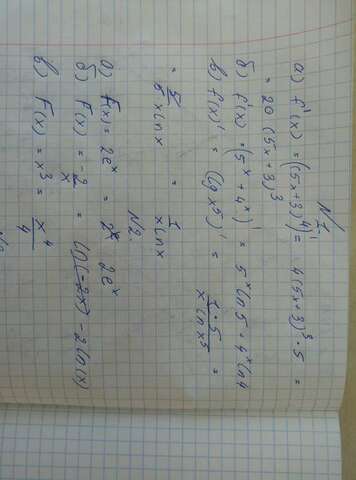 N1.
а) f'(x) = ((5x+3)⁴)' = 4(5x+3)³ · 5 =
= 20 (5x+3)³
б) f'(x) = (5ˣ + 4ˣ)' = 5ˣ ln 5 + 4ˣ ln 4
в) f(x)' = (lg x⁵)' = 1 · 5 / x ln x⁵ =
= 5 / 5 x ln x = 1 / x ln x
N2.
а) F(x) = 2eˣ = 2eˣ
б) F(x) = -2 / x = ln(-2x) - 2 ln(x)
в) F(x) = x³ = x⁴ / 4